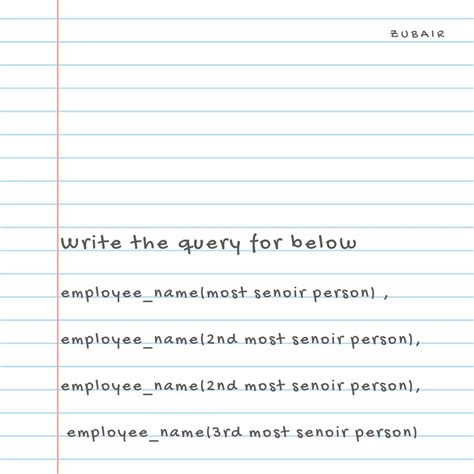 ZUBAIR
Write the query for below
employee_name(most senoir person) ,
employee_name(2nd most senoir person),
employee_name(2nd most senoir person),
employee_name(3rd most senoir person)